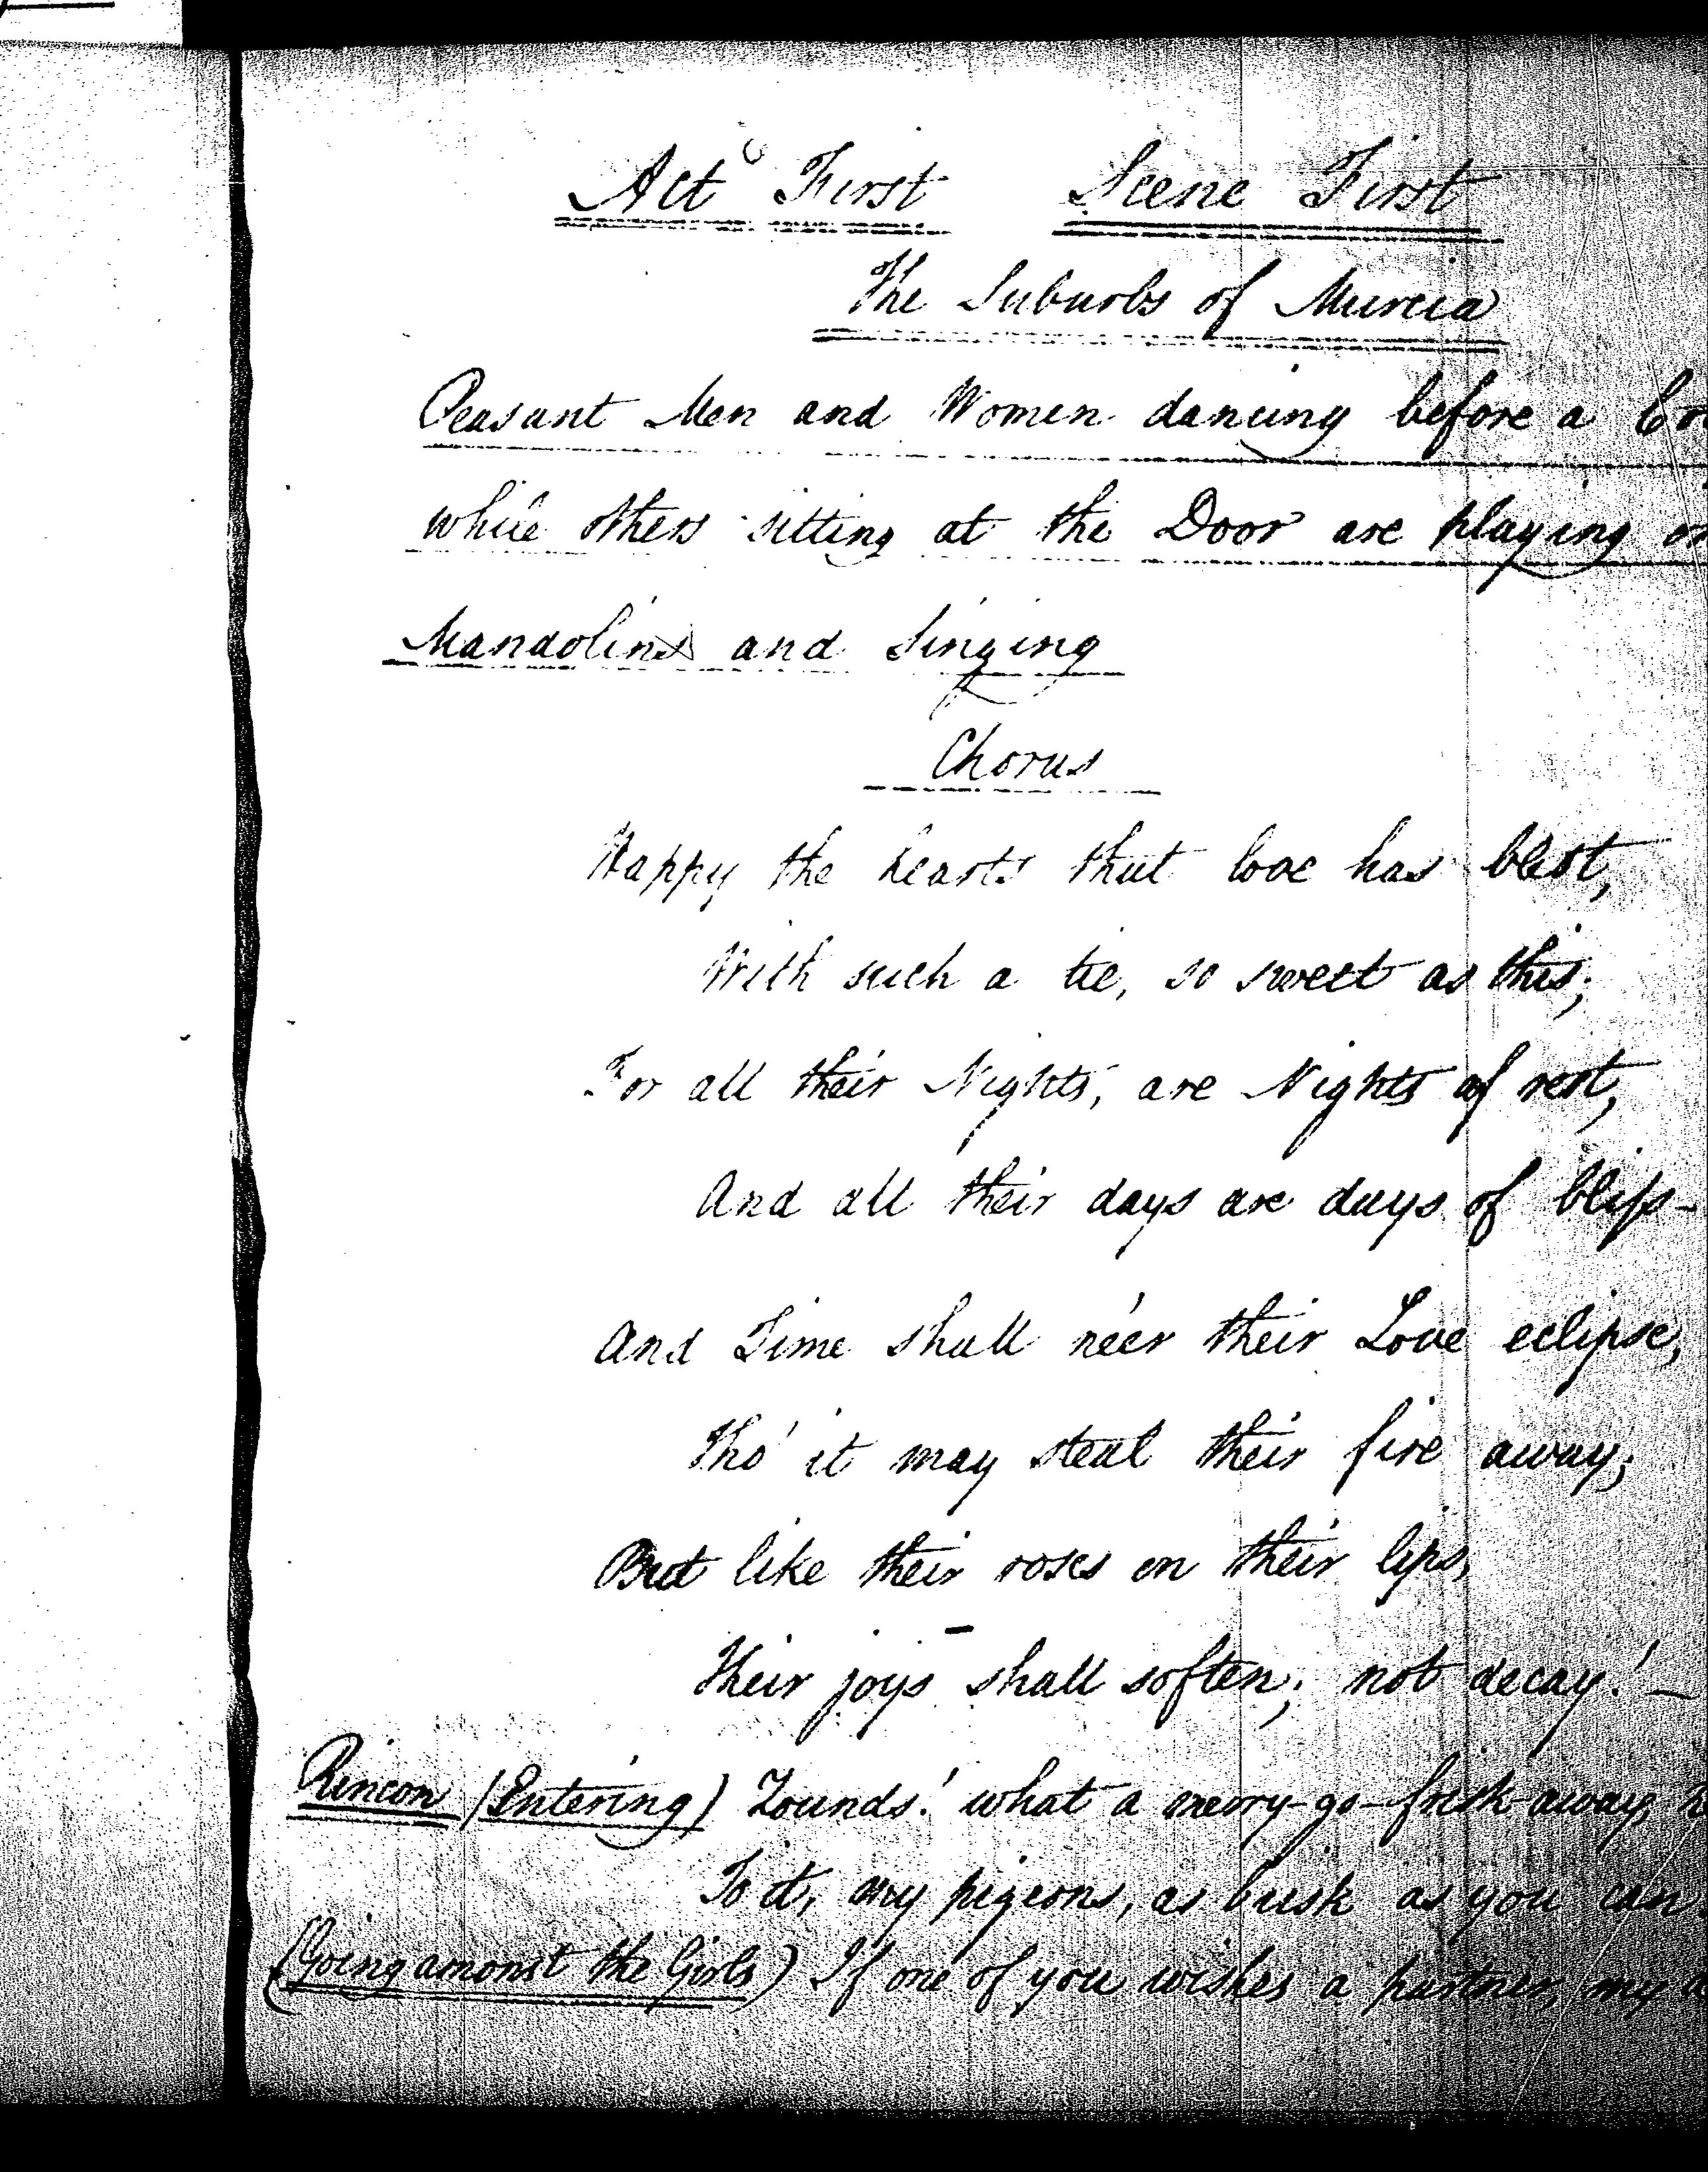 Act First Scene First
The Suburbs of Murcia
Peasant Men and Women dancing before a
while others sitting at the Door are playing on
Mandolins and Singing
Chorus
Happy the hearts that love has blest,
With such a tie, so sweet as this;
For all their Nights, are Nights of rest,
And all their days are days of bliss -
And Time shall né'er their Love eclipse,
Tho' it may steal their fire away;
But like their roses on their lips,
Their joys shall soften, not decay! -
Rincon (Entering) Zounds! what a merry-go-frisk-away,
To it, my pigeons, as brisk as you can
(Going amonst the Girls) If one of you wishes a partner, my